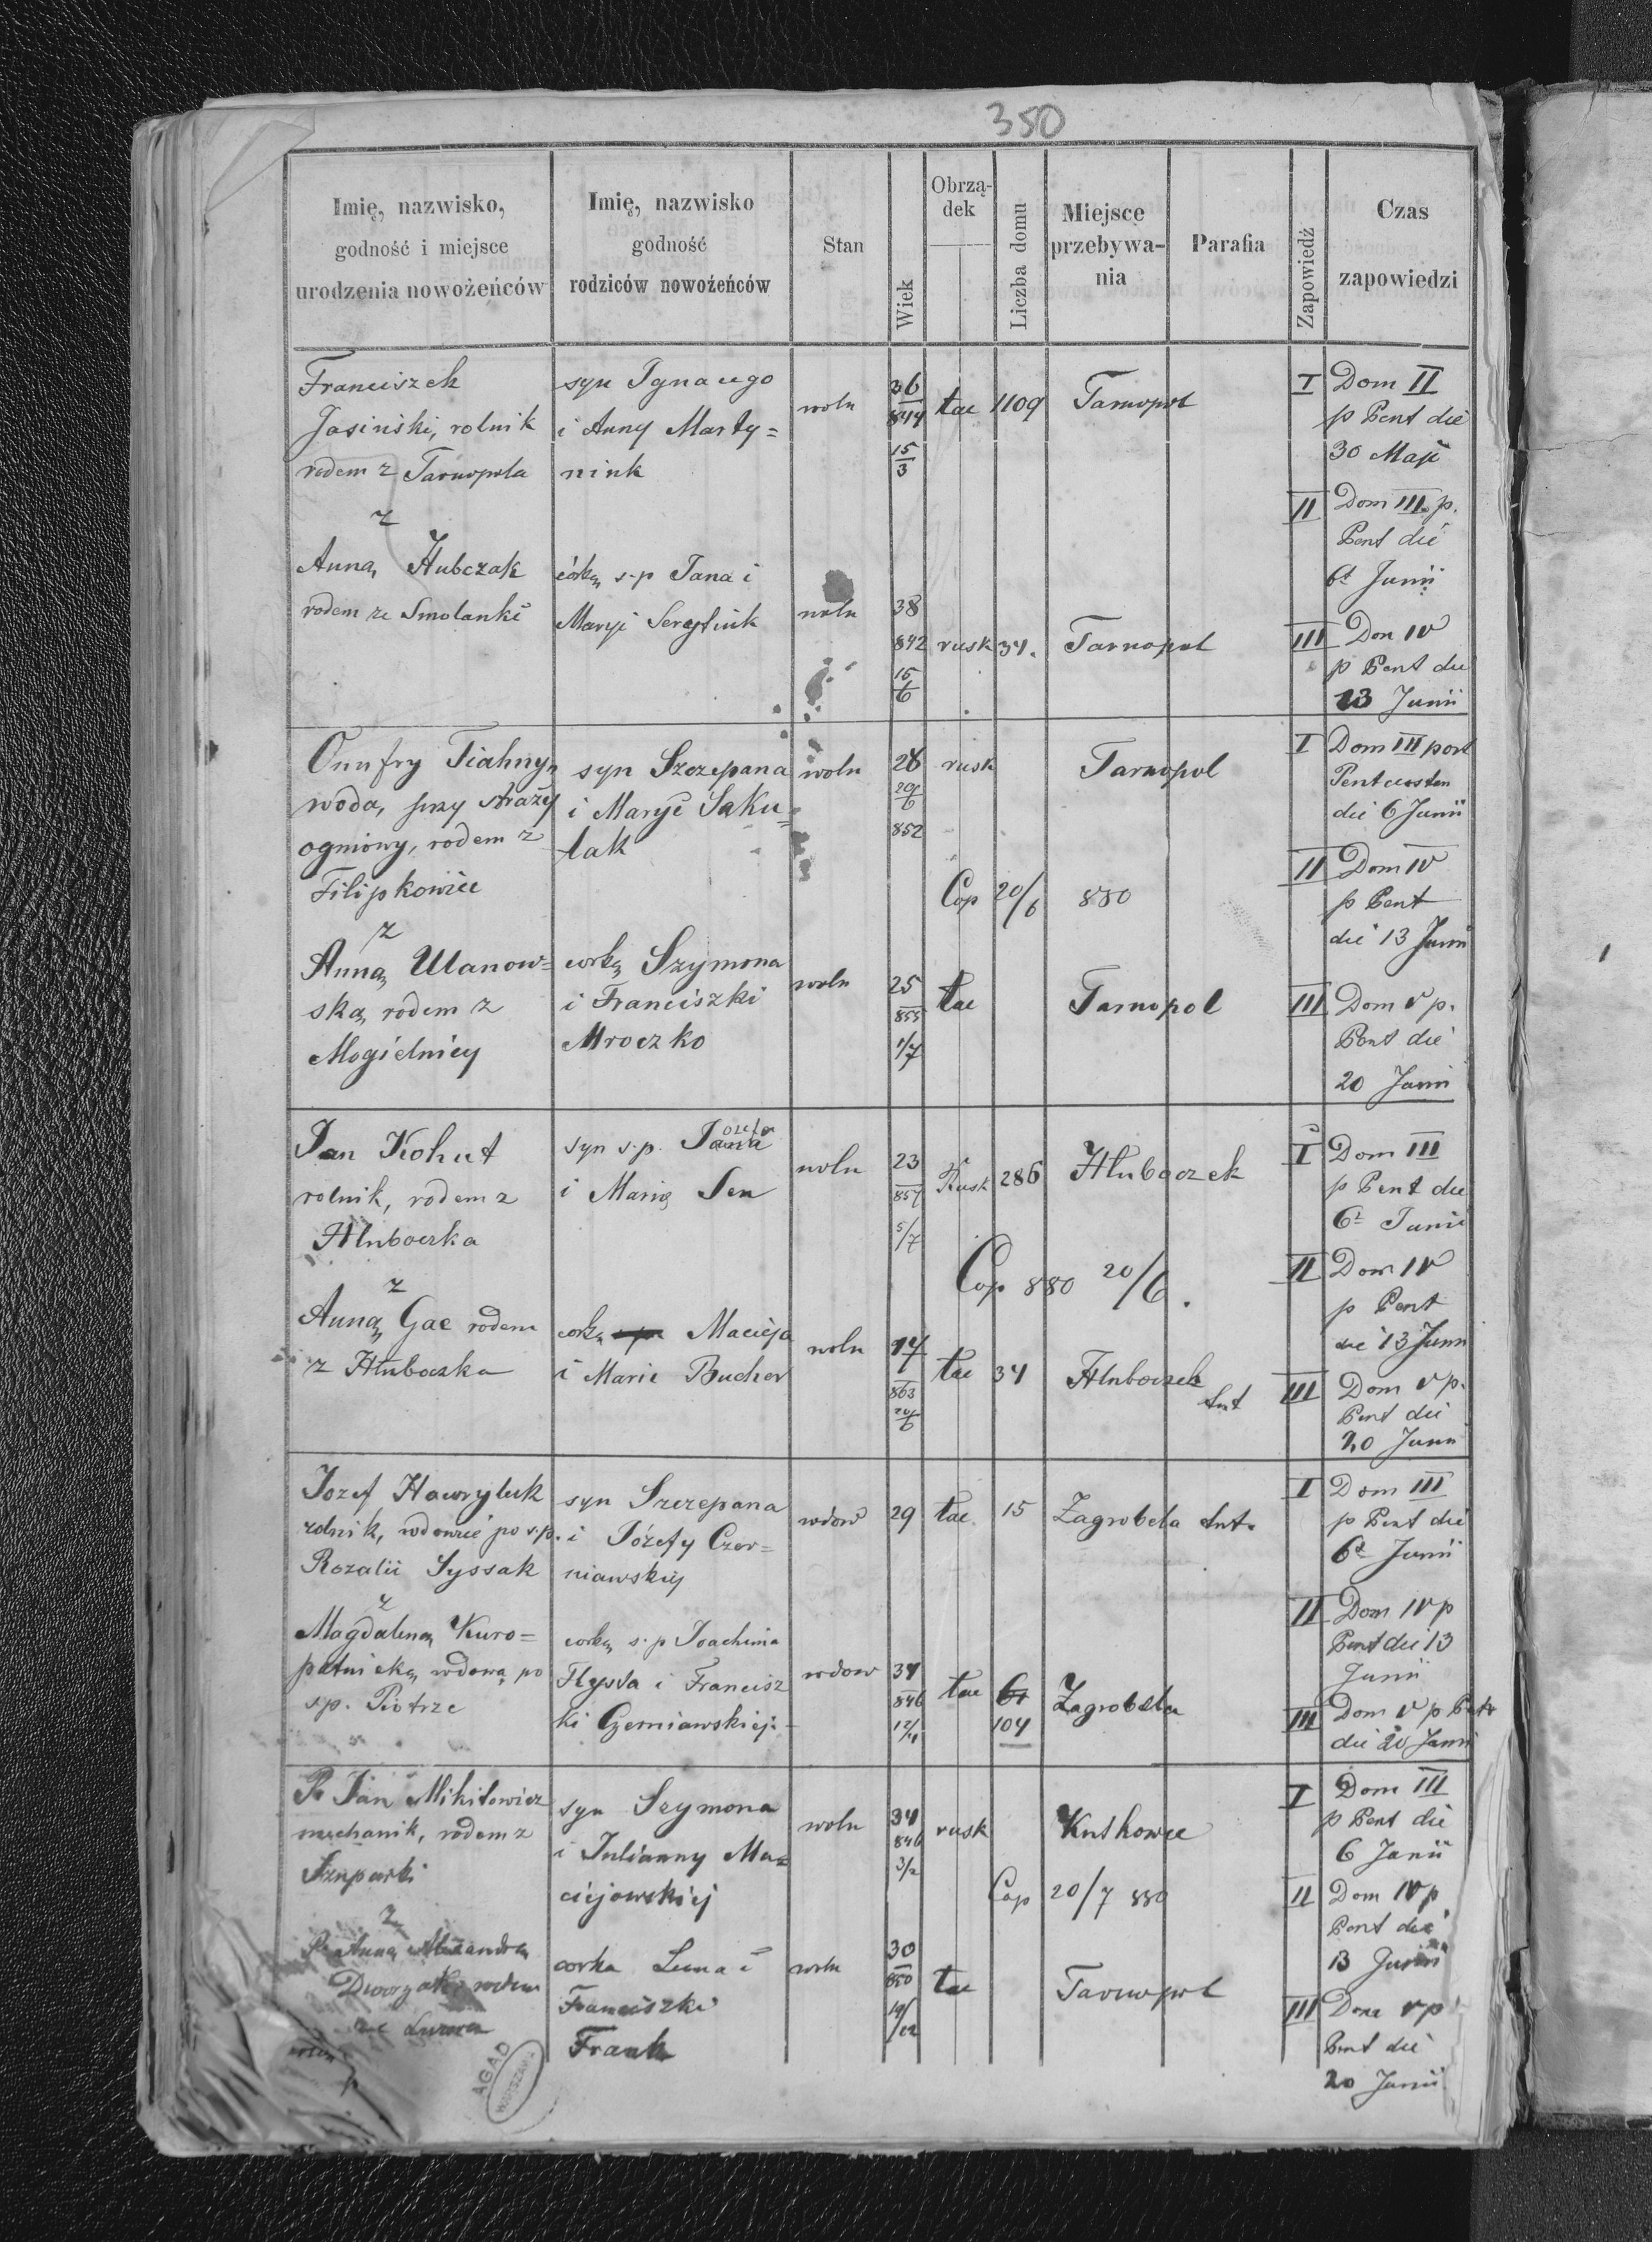 350
Imię, nazwisko,
godność i miejsce
urodzenia nowożeńców
Imię, nazwisko
godność
rodziców nowożeńców
Stan
Wiek
Obrzą-
dek
Liczba domu
Miejsce
przebywa-
nia
Parafia
Zapowiedź
Czas
zapowiedzi
Franciszek
Jasiński, rolnik
rodem z Tarnopola
syn Ignacego
i Anny Marty=
niuk
woln
36
844
15/3
łac
1109
Tarnopol
I Dom II
p Pent die
30 Maji
II Dom III p.
Pent die
6t Junii
z
Anną Hubczak
rodem ze Smolanki
córką s.p Jana i
Maryi
woln
38
842
15/6
rusk
34.
Tarnopol
III Dom IV
p Pent die
13 Junii
Onufry Tiahny
woda, przy straży
ogniowy, rodem z
Filipkowiec
syn Szczepana
i Maryi Saku=
lak
woln
28
29/6
852
rusk
Tarnopol
Cop 20/6 880
I Dom III post
die 6 Junii
II Dom IV
p Pent
die 13 Junii
z
Anną Ulanow=
ską rodem z
Mogielnicy
corką Szymona
i Franciszki
Mroczko
woln
25
855
1/7
łac
Tarnopol
III Dom V p.
Pent die
20 Junii
Jan Kohut
rolnik, rodem z
Hluboczka
syn s.p.
i Marią Sen
woln
23
857
5/7
Rusk
286
Hluboczek
Cop 880 20/6.
I Dom III
p Pent die
6t Junii
II Dom IV
p Pent
die 13 Junii
z
Anną Gac rodem
z Hluboczka
corką Macieja
i Marii Bucher
woln
17
863
20/6
łac
34
Hluboczek
III Dom V p.
Pent die
20 Junii
Jozef Hawryluk
rolnik, wdowiec po s.p.
Rozalii Syssak
syn Szczepana
i Józefy Czer=
niawskiej
wdow
29
łac.
15
Zagrobela
I Dom III
p Pent die
6t Junii
II Dom IV p
Pent die 13
Junii
z
Magdaleną Kuro=
patnicką, wdową po
s.p. Piotrze
corką s.p Joachima
i Francisz
ki Czerniawskiej
wdow
34
846
łac
104
Zagrobela
III Dom V p
die 20 Junii
P. Jan Mikitowicz
mechanik, rodem z
syn Szymona
i Julianny Ma=
ciejowskiej
woln
34
846
3/2
rusk
Cop 20/7 880
I Dom III
p Pent die
6 Junii
II Dom IV p
Pent die
13 Junii
z
Anną
rodem
corka
Franciszki
Frank
woln
30
850
łac
Tarnopol
III Dom V p
Pent die
20 Junii
AGAD
WARSZAWA